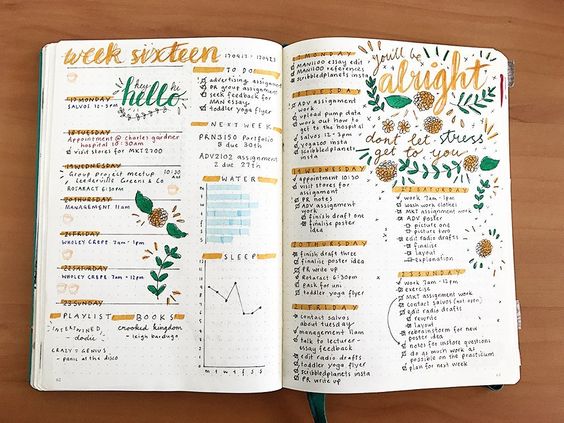 week sixteen
170417 - 170423
17 MONDAY
SALVOS 12-5PM
hey hi
hello
18 TUESDAY
Appointment @ charles gardner
hospital 10:30am
visit stores for MKT2700
19 WEDNESDAY
Group project meetup 11 AM
Leederville Greens & Co
ROTARACT 6:30PM
20 THURSDAY
MANAGEMENT 11am
21 FRIDAY
WHOLEY CREPE 7am - 1pm
22 SATURDAY
WHOLEY CREPE 7am - 12pm
23 SUNDAY
PLAYLIST
INTERTWINED
- dodie
CRAZY = GENIUS
- panic at the disco
BOOKS
crooked kingdom
- leigh bardugo
TO DO
advertising assignment
PR group assignment
seek feedback for
MAN essays
toddler yoga flyer
NEXT WEEK
PRN3150 Portfolio
due 30th
ADV2102 assignment
2 due 27th
WATER
SLEEP
M T W T F S S
62
MONDAY
MAN1100 essay edit
MAN1100 references
scribbledplanets insta
TUESDAY
ADV assignment
work
upload pump data
work out how to
get to the hospital
salvos 12-5pm
yoga200 insta
scribbledplanets
insta
19 WEDNESDAY
appointment 10:30
visit stores for
assignment
PR notes
ADV assignment
work
finish draft one
finalise poster
idea
20 THURSDAY
finish draft three
finalise poster idea
PR write up
Rotaract 6:30pm
pack for uni
toddler yoga flyer
21 FRIDAY
contact salvos
about tuesday
management 11am
talk to lecturer -
essay feedback
edit radio drafts
toddler yoga flyer
scribbledplanets insta
PR write up
you'll be
alright
dont let stress
get to you
22 SATURDAY
work 7am - 1pm
wash work clothes
MKT assignment work
ADV poster
picture one
picture two
edit radio drafts
finalise
layout
explanation
23 SUNDAY
Work 7am - 12pm
exercise
MKT assignment work
contact salvos (not open)
edit radio drafts
rewrite
layout
rebrainstorm for new
poster idea
notes for instore questions
do as much work as
possible on the practicum
plan for next week
63